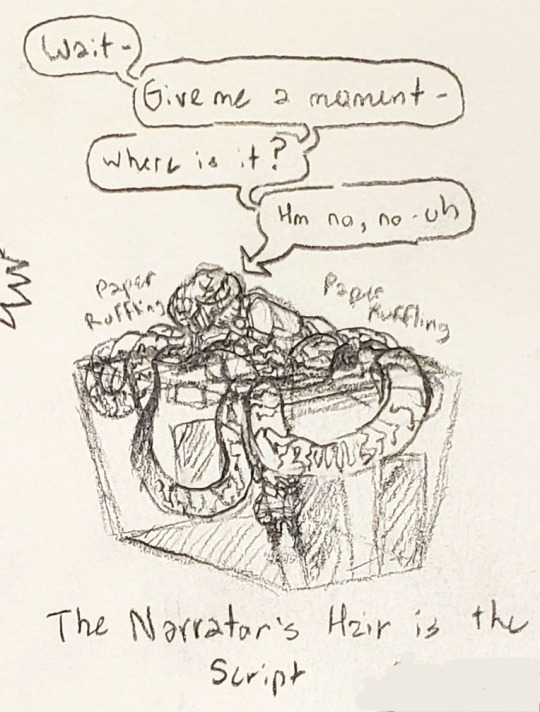 Wait-
Give me a moment-
Where is it?
Hm no, no-uh
Paper
Ruffling
Paper
Ruffling
The Narrator's Hair is the
Script